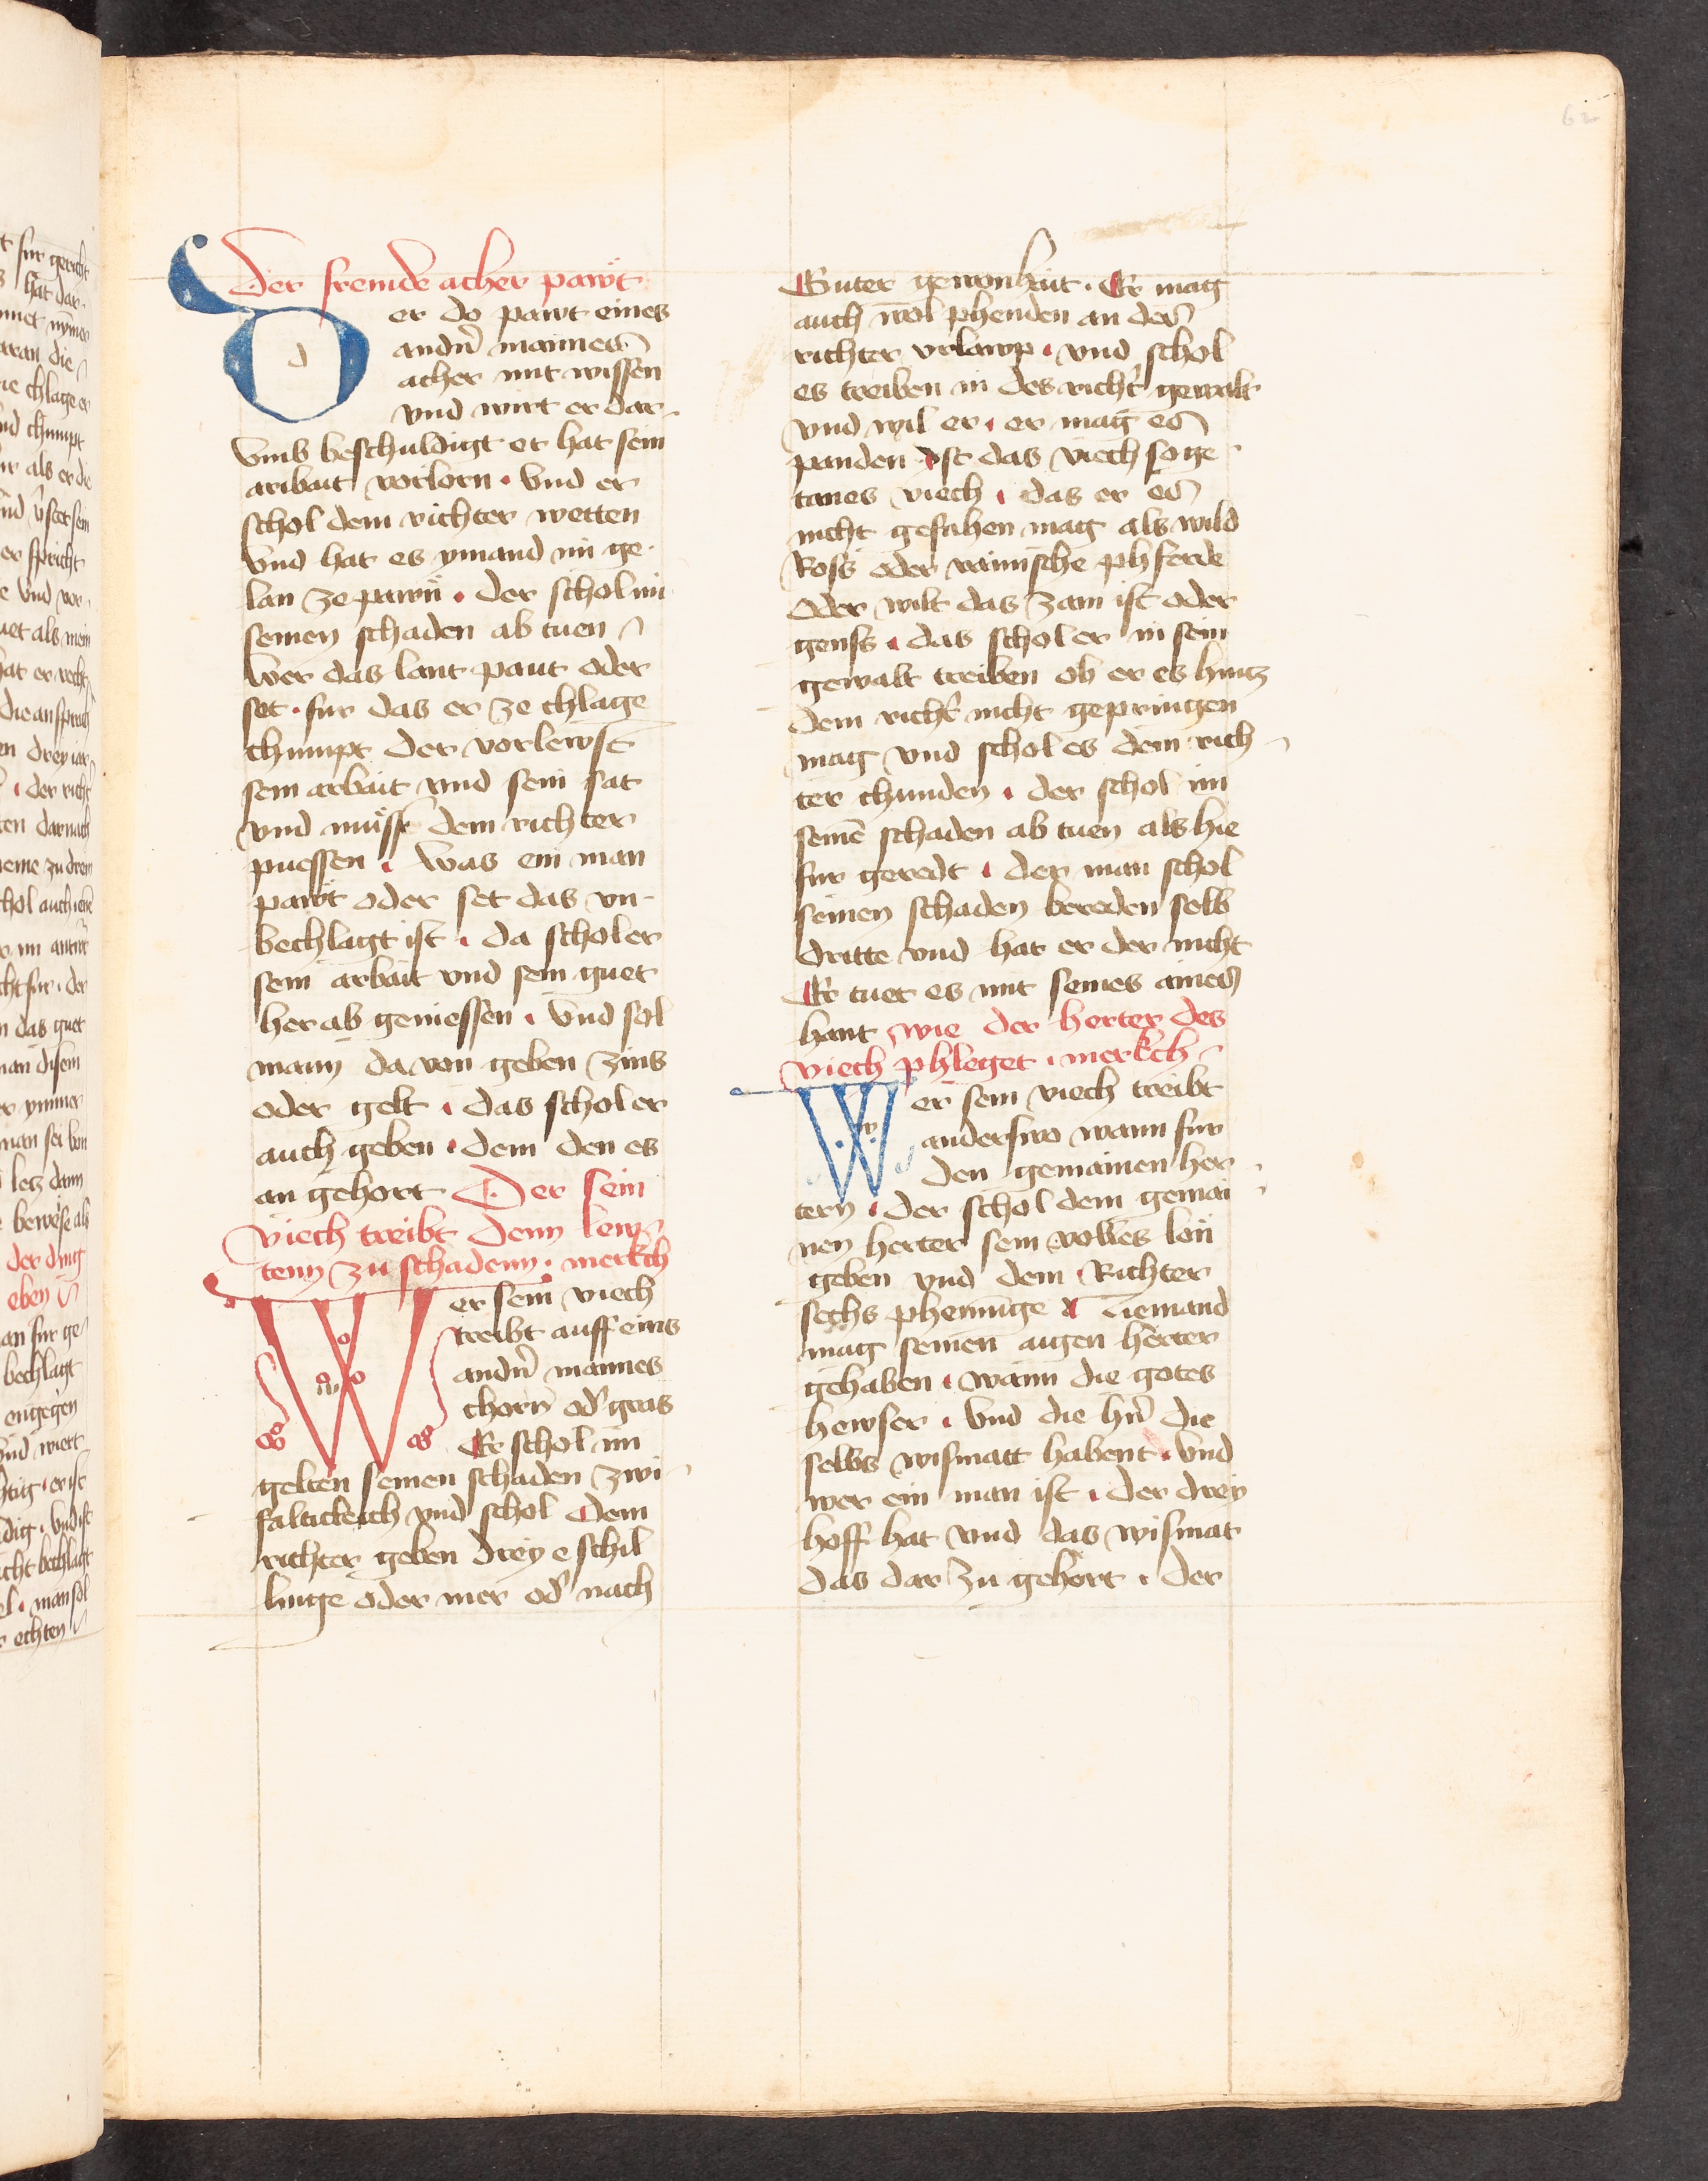 62
Der fremde acher pawt
Der do pawt eines
andn̄ mannes
acher mit wissen
vnd wirt er dar
vmb beschuldigt er hat sein
aribait vorlorn · Vnd er
schol dem richter wetten
Vnd hat es ymand im ge
lan ze pawn̄ · der schol im
seinen schaden ab tuen
Wer das lant paut oder
set · fur das er ze chlage
chumpt der vorlewst
sein arbait vnd sein sat
vnd muͦss dem richter
puessen · Was ein man
pawt oder set das vn
bechlagt ist · da schol er
sein arbait vnd sein guet
her ab geniessen · Vnd sol
mann da von geben zins
oder gelt · das schol er
auch geben · dem den es
an gehort Der sein
viech treibt denn lew
tenn zu schadenn · merkch
Wer sein viech
treibt auff eins
andn̄ mannes
chorn od' gras
Er schol im
gelten seinen schaden zwi
faltickeich vnd schol dem
richter geben drey e schil
linge oder mer od' nach
Guter gewonhait · Er mag
auch wol phenden an der
richter vrlawp · vnd schol
es treiben in des richt' gewalt
vnd wil er · er mag es
panden Ist das viech so ge
tanes viech · das er es
nicht gefahen mag als wild
Ross oder rainische phferde
oder wilt das zam ist oder
genss · das schol er in sein
gewalt treiben ob er es hintz
dem richt' nicht gepringen
mag vnd schol es dem rich
ter chunden · der schol im
seinē schaden ab tuen als hie
fur geredt · der man schol
seinen schaden bereden selb
dritte vnd hat er der nicht
Er tuet es mit seines aines
hant wie der herter des
viech phleget · merkch
Wer sein viech treibt
anderswo wann fur
den gemainen her
tern · der schol dem gemai
nen herter sein volles lon
geben vnd dem Richter
sechs phenninge Niemand
mag seinen aigen herter
gehaben · wann die gotes
hewser · Vnd die hn̄ die
selbs wismatt habent · vnd
wer ein man ist · der drey
hoff hat vnd das wismat
das dar zu gehort · der